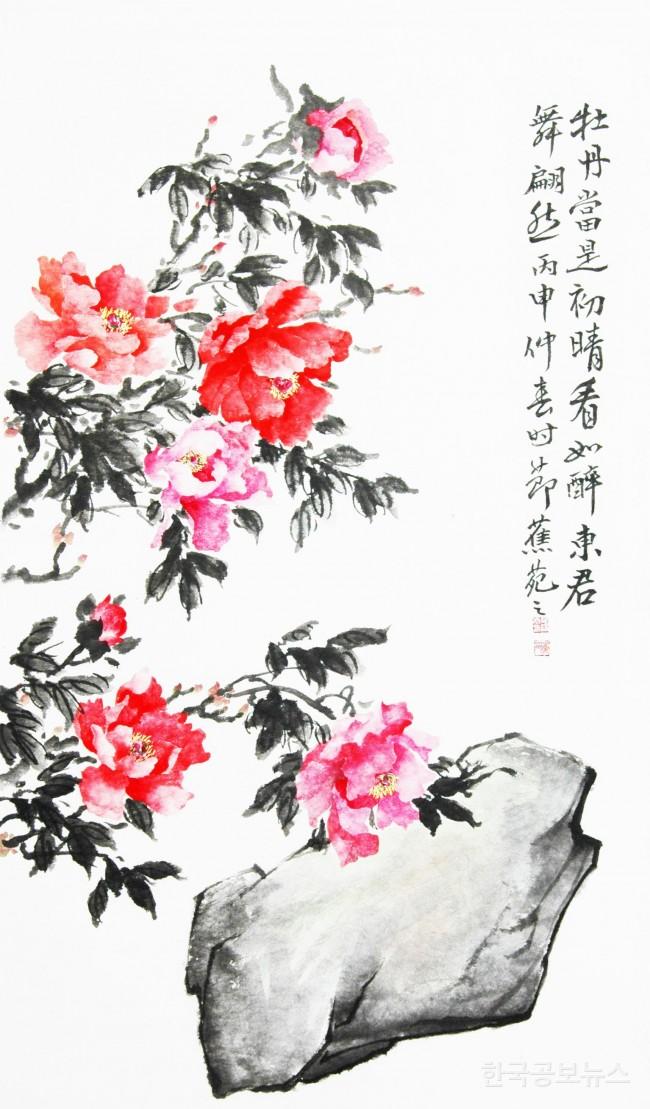 牡丹當是初晴看如醉東君
舞翩然丙申仲春时節蕉苑之
한국공보뉴스